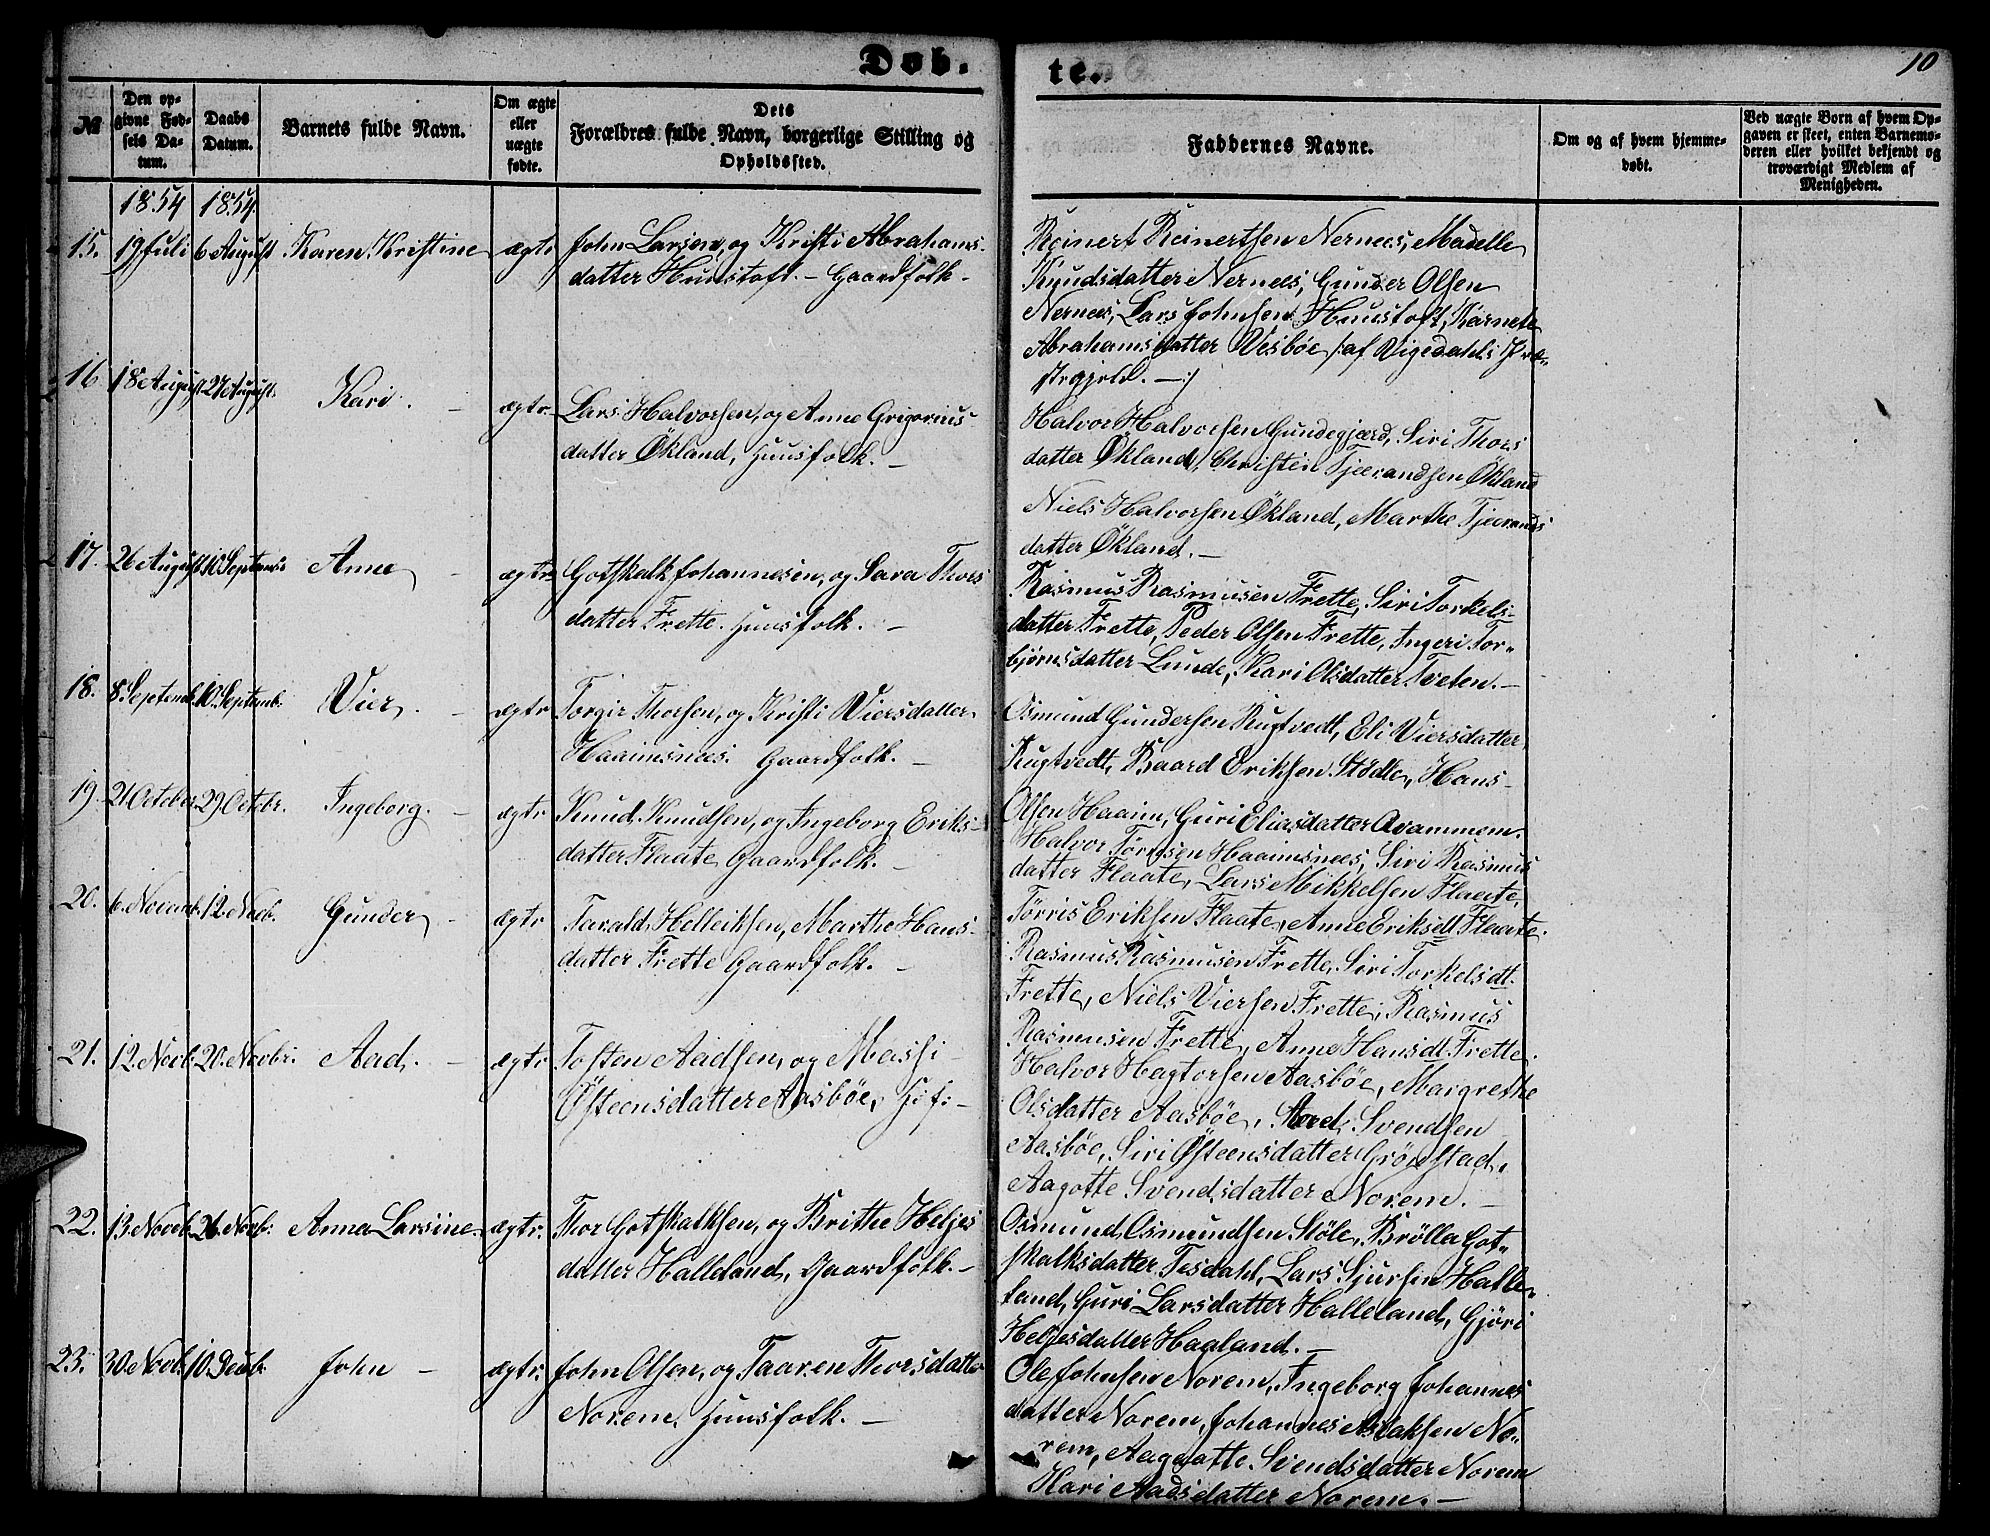 Døb.
te.
10
№
Den op-
givne Fød-
sels Da-
tum.
Daabs
Datum.
Barnets fulde Navn.
Om ægte
eller
uægte
fødte.
Dets
Forældres fulde Navn, borgerlige Stilling og
Opholdssted.
Faddernes Navne.
Om og af hvem hjemme-
døbt.
Ved uægte Børn af hvem Op-
gaven er skeet, enten Barnemo-
deren eller hvilket bekjendt og
troværdigt Medlem af
Menigheden.
1854 1854.
15. 19 Juli 6 August Karen Kristine ægte John Larsen, og Kristi Abrahams-
datter Hunstoft. – Gaardfolk –
Reinert Reinertsen Nernees, Madelle
Knudsdatter Nernees, Gunder Olsen
Nernees, Lars Johnsen Huustoft, Karnete
Abrahamsdatter Vesbøe /: af Vigedahls Præ-
stegjeld. – :/
16. 18 August 27 August. Kari. – ægte Lars Halvorsen, og Anne Grigorius-
datter Økland, Huusfolk. –
Halvor Halvorsen Gundegjærd, Siri Thors
datter Økland, Christen Tjerandsen Økland
Niels Halvorsen Økland, Marthe Tjerands
datter Økland. –
17. 26 August 10 Septembr Anne – ægte Gotskalk Johannesen, og Sara Thors
datter Frette. Huusfolk. –
Rasmus Rasmusen Frette, Siri Torkels-
datter Frette, Peder Olsen Frette, Ingeri Tor-
bjørnsdatter Lunde, Kari Olsdatter Tveten. –
18. 8 Septemb. 10. Septemb. Vier. – ægte Torgir Thorsen, og Kristi Viersdatter
Haaimsnees. Gaardfolk. –
Osmund Gundersen Rugtvedt, Eli Viersdatter
Rugtvedt, Baard Eriksen Stødle, Hans
Olsen Haaim, Guri Eliasdatter Qvammem.
19. 21 October 29. Octbr. Ingeborg. – ægte Knud Knudsen, og Ingeborg Eriks-
datter Flaate Gaardfolk. –
Halvor Tørresen Haaimsnees, Siri Rasmus
datter Flaate, Lars Mikkelsen Flaate,
Tørris Eriksen Flaate, Anne Eriksdt Flaate.
20. 6. Novemb. 12. Novb. Gunder – ægte Tarald Helleiksen, Marthe Hans-
datter Frette Gaardfolk. –
Rasmus Rasmusen Frette, Siri Torkelsdt.
Frette, Niels Viersen Frette, Rasmus
Rasmusen Frette, Anne Hansdt. Frette.
21. 12. Novb. 20. Novbr. Aad. – ægte Tosten Aadsen, og Massi
Østeensdatter Aasbøe, H: f: –
Halvor Hagtorsen Aasbøe, Margrethe
Olsdatter Aasbøe, Svendsen
Aasbøe, Siri Østeensdatter Grønstad,
Aagotte Svendsdatter Norem. –
22. 13. Novb. 26. Novbr: Anna Larsine. ægte. Thor Gotskalksen, og Brithe Heljes
datter Halleland, Gaardfolk. –
Osmund Osmundsen Støle, Brølla Got-
skalksdatter Tesdahl, Lars Sjursen Halle-
land, Guri Larsdatter Halleland, Gjøri
Heljesdatter Haaland. –
23. 30 Novb. 10. Decbr. John – ægte. John Olsen, og Taaren Thorsdatter
Norem, Huusfolk. –
Ole Johnsen Norem, Ingeborg Johannes
datter Norem, Johannes Aslaksen No-
rem, Aagaatte Svendsdatter Norem
Kari Aadsdatter Norem. –